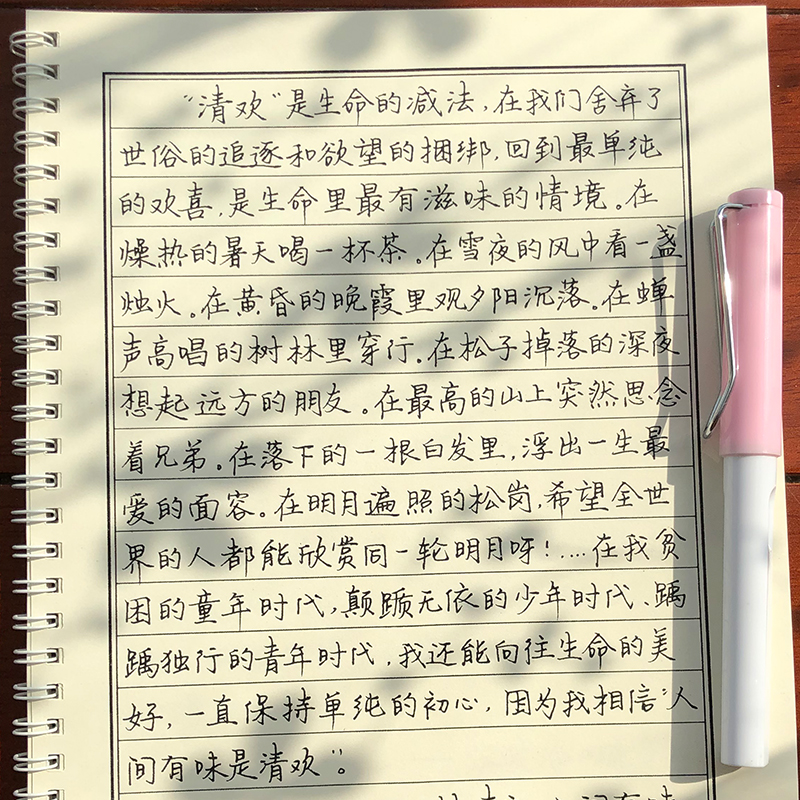 “清欢”是生命的减法,在我们舍弃了
世俗的追逐和欲望的捆绑,回到最单纯
的欢喜,是生命里最有滋味的情境。在
燥热的暑天喝一杯茶。在雪夜的风中看一盏
烛火。在黄昏的晚霞里观夕阳沉落。在蝉
声高唱的树林里穿行。在松子掉落的深夜
想起远方的朋友。在最高的山上突然思念
着兄弟。在落下的一根白发里,浮出一生最
爱的面容。在明月遍照的松岗,希望全世
界的人都能欣赏同一轮明月呀!....在我贫
困的童年时代,颠踬无依的少年时代、踽
踽独行的青年时代,我还能向往生命的美
好,一直保持单纯的初心,因为我相信“人
间有味是清欢”。